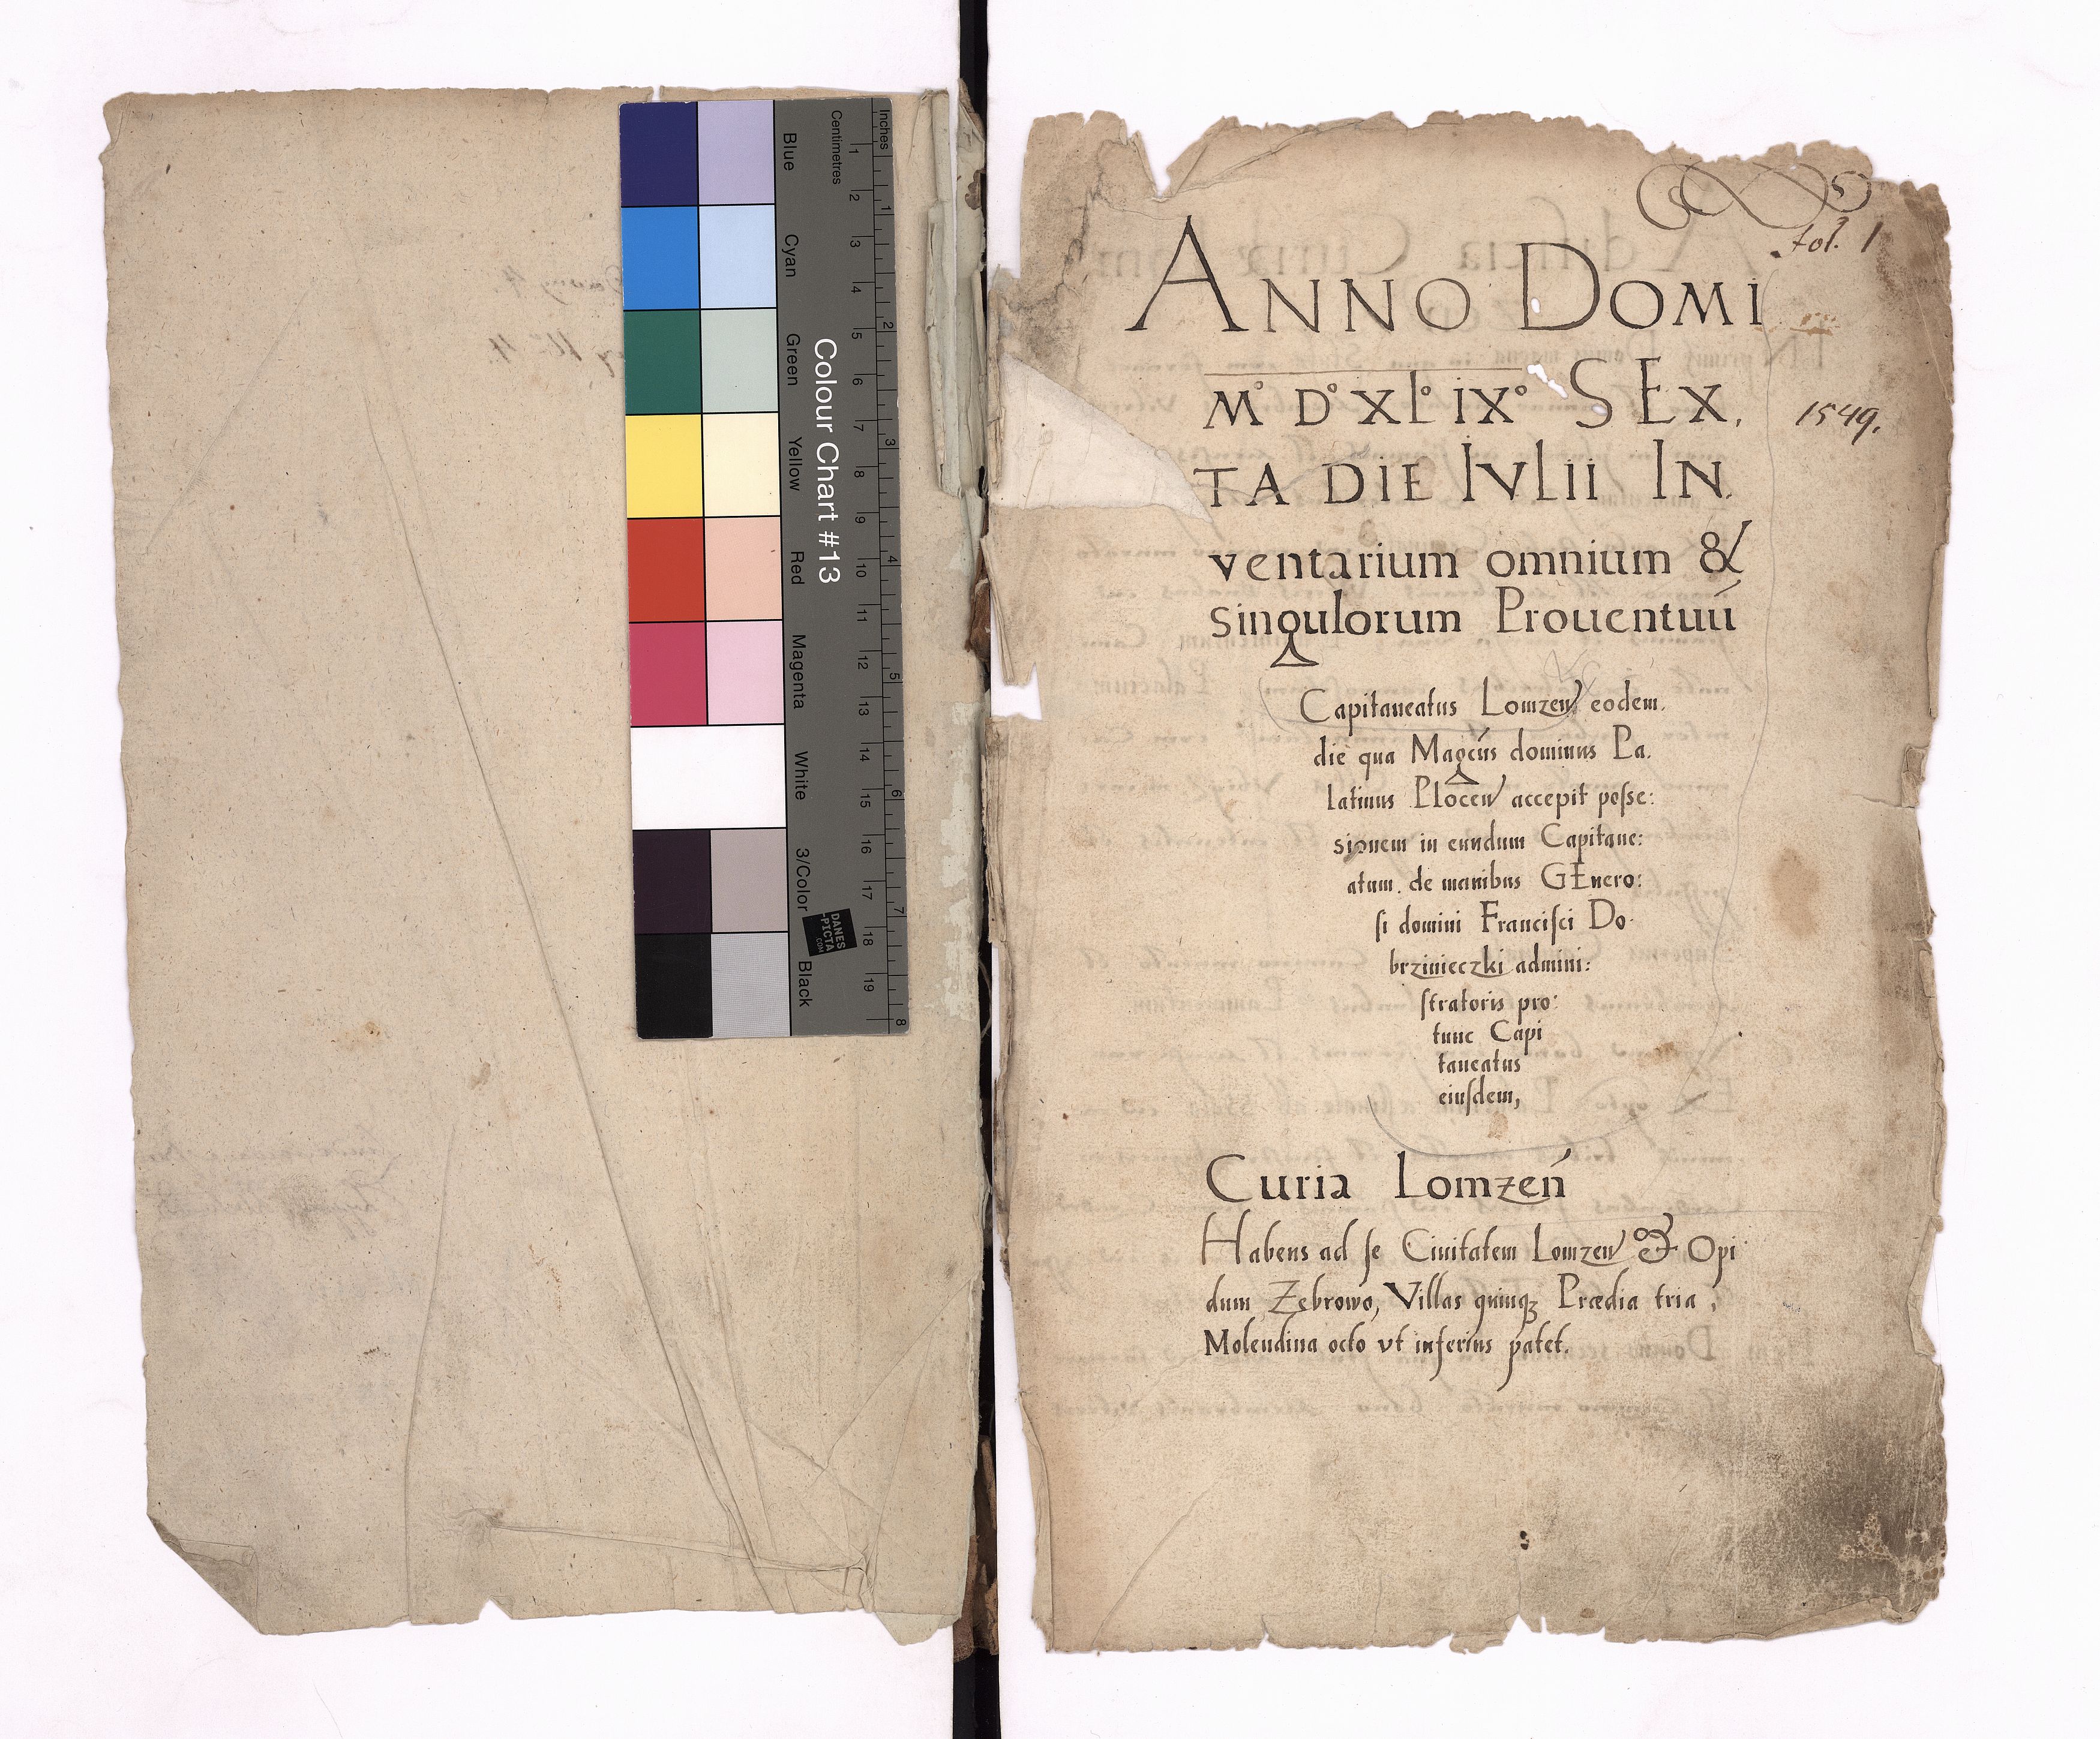 Colour Chart #13
Blue
Cyan
Green
Yellow
Red
Magenta
White
3/Color
Black
Centimetres
1 2 3 4 5 6 7 8 9 10 11 12 13 14 15 16 17 18 19
Inches
1 2 3 4 5 6 7 8
DANES
-PICTA
.COM
fol. 1
ANNO DOMI
M° D° XL° IX° SEX.
1549.
TA DIE IVLII IN.
ventarium omnium &
singulorum Prouentuū
Capitaneatus Lomzeń eodem.
die qua Magcus dominus Pa.
latinus Ploceń accepit poſse:
sionem in eundum Capitane:
atum. de manibus GEnero:
ſi domini Franciſci Do.
brzinieczki admini:
ſtratoris pro:
tunc Capi
taneatus
eiuſdem,
Curia Lomzeń
Habens ad ſe Ciuitatem Lomzeń & Opi
dum Zębrowo, Villas quinqꝫ Prædia tria,
Molendina octo vt inferius patet.